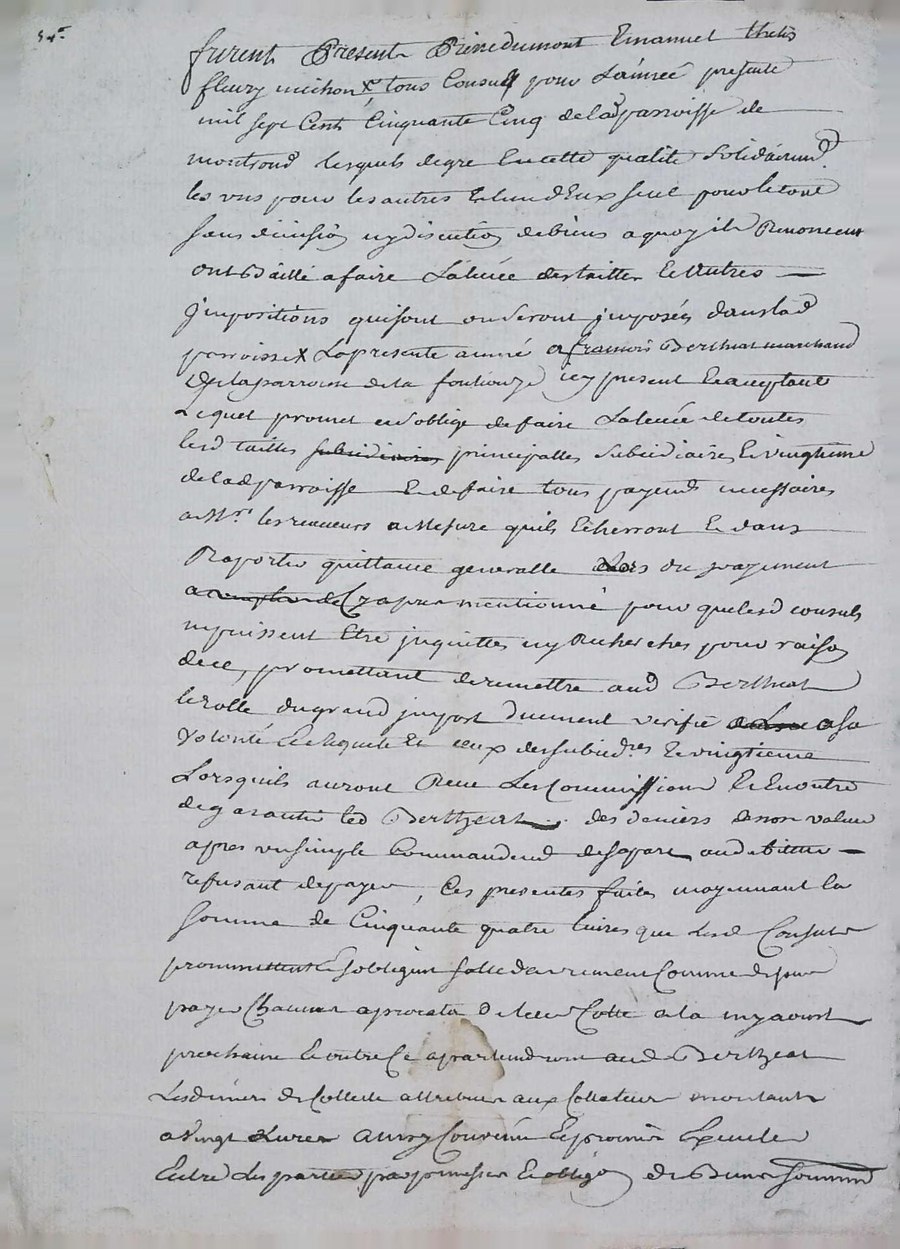 54#
furent Presents Pierre dumont Emanuel thelis
fleury michon x tous Consuls pour Lannée presente
mil sept Cents Cinquante Cinq de lad parroisse de
montrond lesquels de gre En cette qualité Solidairemt
les uns pour les autres Et lun dEux seul pour le tout
sans division ny discution de biens a quoy ils Renoncent
ont Baillé a faire La levée des tailles Et Autres
Jmpositions qui sont ou seront jmposés dans lad
parroisse x La presente année a francois Bertheat marchand
de la parroisse de la foulionze icy present Et aceptant
Lequel promet et s'oblige de faire La levée de toutes
lesd tailles subsidiaires principalles Subsidiaires Et vingtieme
de lad parroisse Et de faire tous payemts necessaires
a Mrs les receveurs a Mesure quils Echerront Et dans
Raporter quittance generalle Lors du payement
Cy apres mentionné pour que lesd consuls
ny puissent Etre jnquiettes ny Recherches pour raison
de ce, promettant de remettre aud Bertheat
le rolle du grand jmpost duement verifie a sa
Volonté Et Requete Et ceux des subsides Et vingtieme
Lorsquils auront Recu Les Commissions Et En outre
de garantir led Bertheat des deniers de non valeur
apres un simple Commandemt de sa part au debiteur
refusant de payer, Ces presentes faites moyennant la
somme de Cinquante quatre livres que lesd Consuls
promettent Et sobligent solidairement Comme dessus
payer Chacun a prorata de leur Cotte a la my aoust
prochaine Et outre Ce apartiendront aud Bertheat
Les deniers de Collecte attribues aux Collecteurs montant
a vingt Livres ainsy Convenu Et promis Executer
Entre les parties par promesse Et obligon de Biens soummon